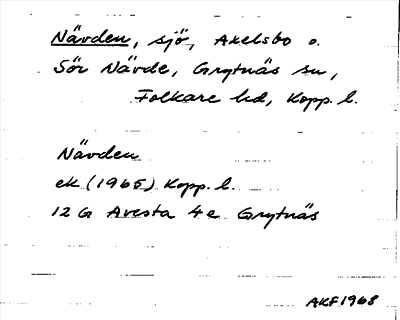 Nävden, sjö, Axelsbo o.
Sör Nävde, Grytnäs sn,
Folkare hd, Kopp. l.
Nävden
ek (1965) Kopp. l.
12 G Avesta 4e Grytnäs
AKF 1968